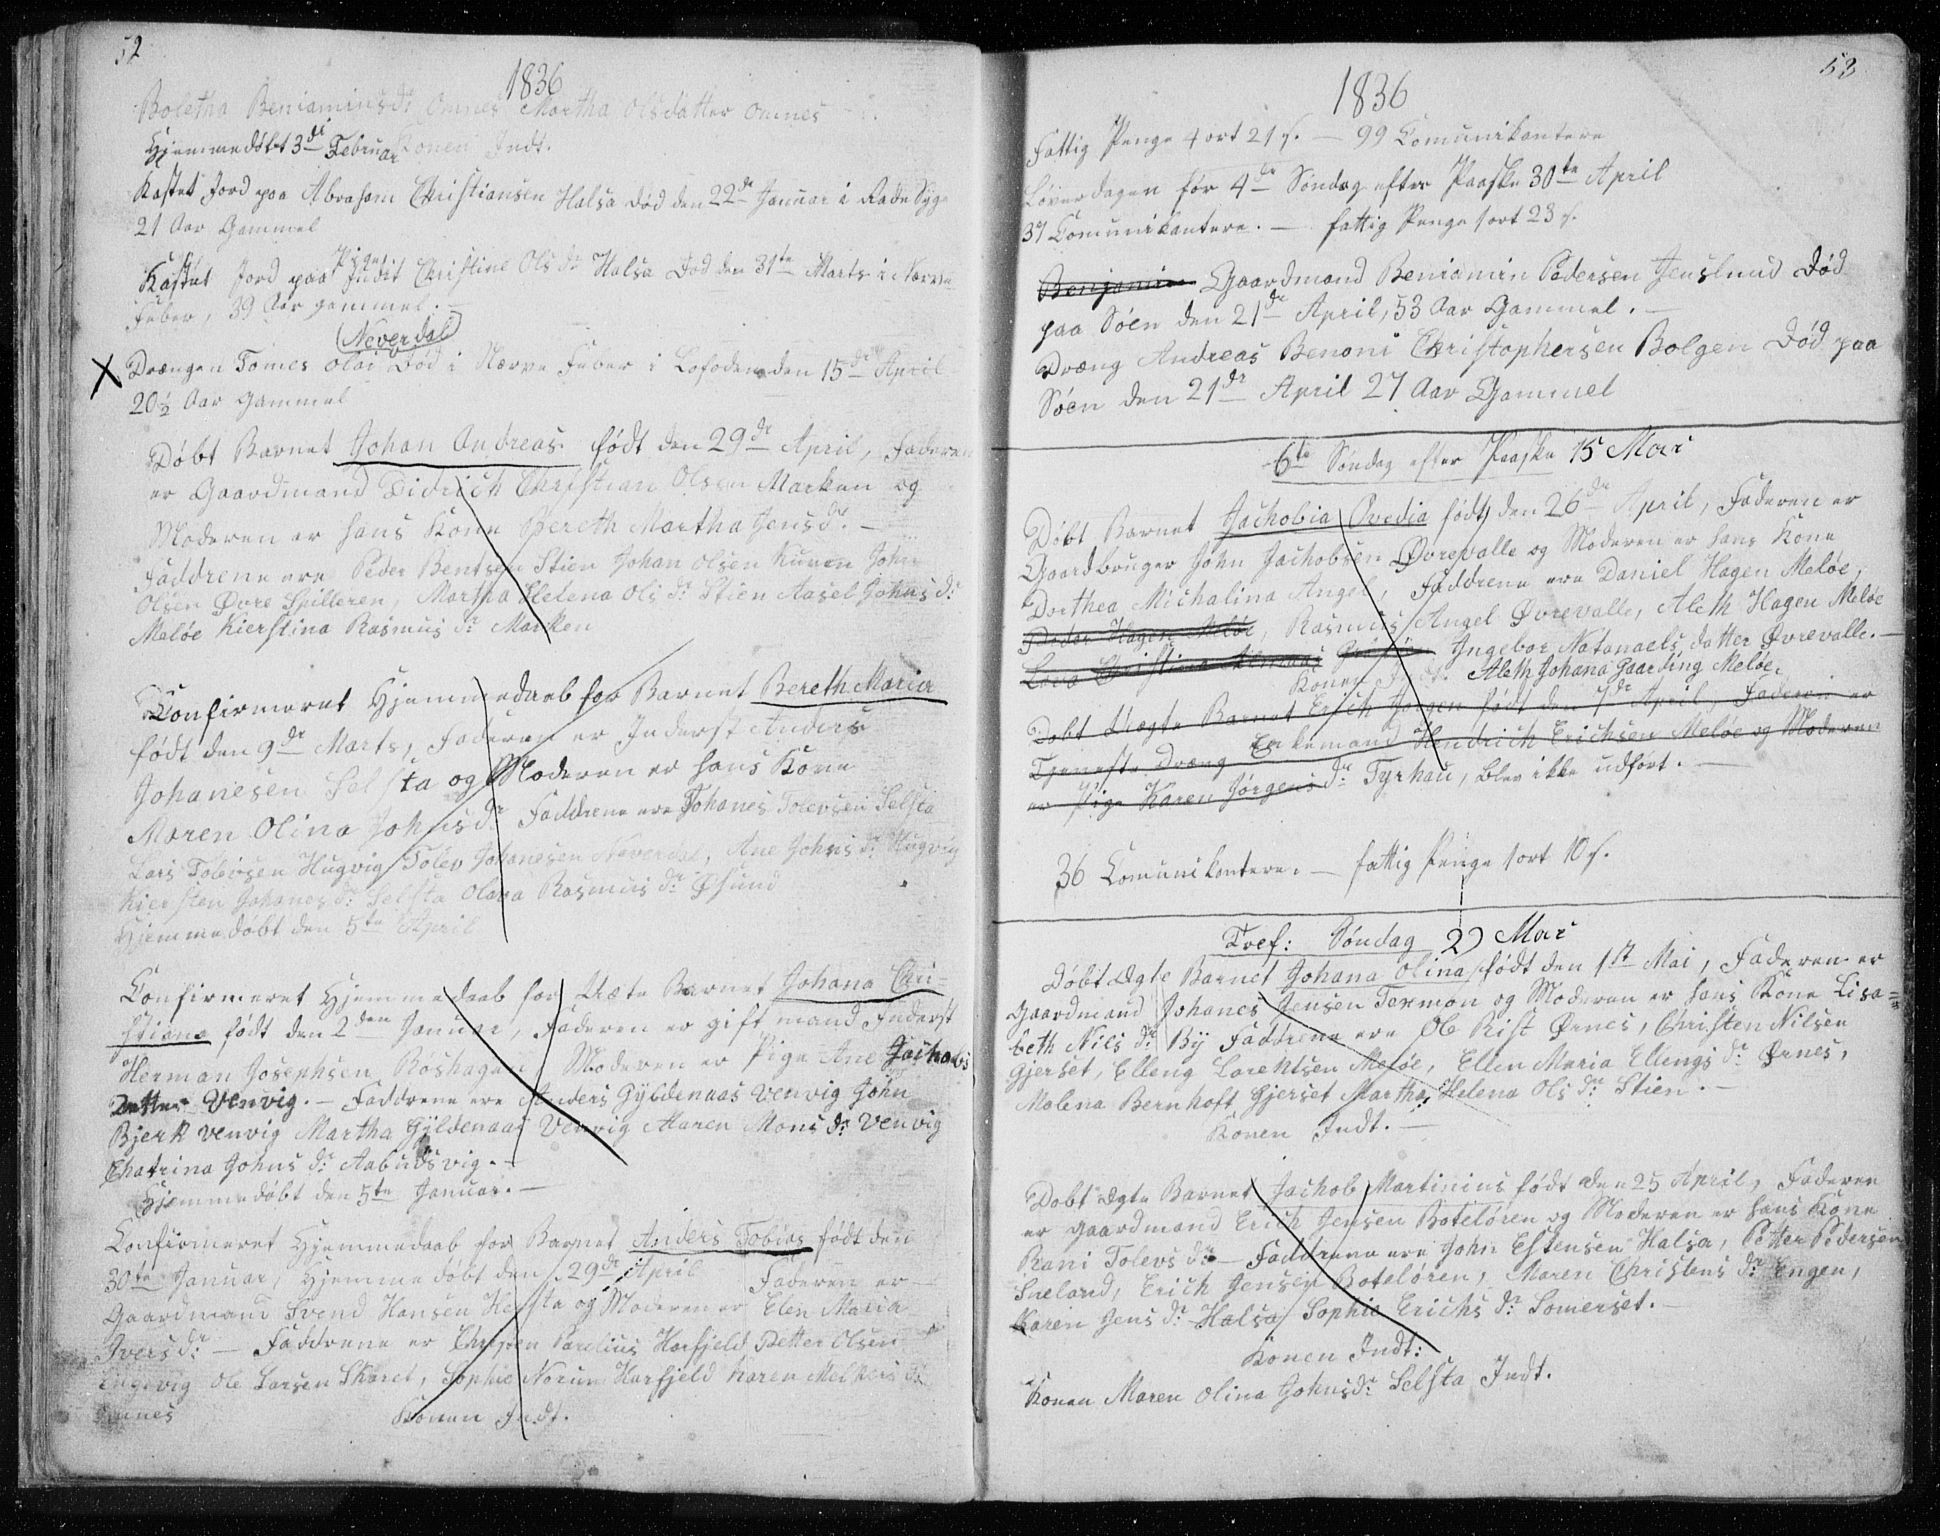 52
1836
Boletha Beniaminsdr Omnes Martha Olsdatter Omnes
Hjemmedøbt 3di Februar Konen Indt.
Kastet Jord paa Abraham Christiansen Halsa død den 22de Januar i Rade Syge
21 Aar Gammel
Kastet Jord paa Pige Indit Christine Olsdr Halsa Død den 31te Marts i Nerve
Feber, 39 Aar gammel.
Neverdal
X Drængen Tomes Olai Død i Nerve Feber i Lofoden den 15de April
20½ Aar Gammel
Døbt Barnet Johan Andreas født den 29de April, Faderen
er Gaardmand Didrich Christian Olsen Marken og
Moderen er hans Kone Bereth Martha Jensdr. —
Faddrene ere Peder Bentsen Stien Johan Olsen Kunen John
Olsen Øvre Spilleren, Martha Helena Olsdr Stien Aasel Johnsdr
Meløe Kierstina Rasmusdr Marken
Confirmeret Hjemmedaab for Barnet Bereth Maria
født den 9de Marts, Faderen er Inderst Anders
Johanesen Selsta og Moderen er hans Kone
Maren Olina Johnsdr Faddrene ere Johanes Tolevsen Selsta
Lars Tolevsen Hugvig Tolev Johanesen Neverdal, Ane Johnsdr Hugvig
Kiersten Johanesdr Selsta Olava Rasmusdr Øsund
Hjemmedøbt den 5te April
Confirmeret Hjemmedaab for Uæte Barnet Johana Chri=
stiana født den 2den Januar, Faderen er gift mand Inderst
Herman Josephsen Røshagen Moderen er Pige Ane Jachobs
Datter Venvig. — Faddrene ere Anders Gyldenaas Venvig John
Bjerk Venvig Martha Gyldenaas Venvig Maren Monsdr Venvig
Chatrina Johnsdr Aabudsvig. —
Hjemmedøbt den 5te Januar. —
Confirmeret Hjemmedaab for Barnet Anders Tobias født den
30te Januar, Hjemmedøbt den 29de April Faderen er
Gaardmand Svend Hansen Selsta og Moderen er Elen Maria
Iversdr — Faddrene er Christen Parelius Horfjeld Petter Olsen
Engevig Ole Larsen Skaret, Sophie Norum Harfjeld Karen Melkersdr
Omnes Konen Indt.
53
1836
Fattig Penge 4 ort 21 s. — 99 Comunikantere
Løverdagen før 4de Søndag efter Paaske 30te April
37 Comunikantere. — fattig Penge 1 ort 23 s.
Benjamin Gaardmand Beniamin Pedersen Jenslund Død
paa Søen den 21de April, 53 Aar Gammel. —
Dræng Andreas Benoni Christophersen Bolgen Død paa
Søen den 21de April 27 Aar Gammel
6te Søndag efter Paaske 15 Mai
Døbt Barnet Jachobia Ovedia født den 26de April, Faderen er
Gaardbruger John Jachobsen Øvrevalle og Moderen er hans Kone
Dorthea Michalina Angel, Faddrene ere Daniel Hagen Meløe,
Peder Hagen Meløe, Rasmus Angel Øvrevalle, Aleth Hagen Meløe
Lova Christina Ingebor Natanaels datter Øvrevalle. —
Konen Indt. Aleth Johana Gaarding Meløe.
Døbt Uægte Barnet Erich Jørgen født den 7de April, Faderen er
Tjeneste Dræng Enkemand Hendrich Erichsen Meløe og Moderen
er Pige Karen Jørgensdr Tyrhau, blev ikke udført. —
36 Comunikantere. — fattig Penge 1 ort 10 s.
Tref: Søndag 29 Mai
Døbt Ægte Barnet Johana Olina født den 1st Mai, Faderen er
Gaardmand Johanes Jensen Termon og Moderen er hans Kone Lisa=
beth Nilsdr By Faddrene ere Ole Rist Ørnes, Christen Nilsen
Gjerset, Elleng Lorentsen Meløe, Ellen Maria Ellengsdr Ørnes,
Malena Bernhoft Gjerset Martha Helena Olsdr Stien. —
Konen Indt. —
Døbt Ægte Barnet Jachob Martinius født den 25 April, Faderen
er Gaardmand Erich Jensen Boteløren og Moderen er hans Kone
Rani Tolevsdr — Faddrene ere John Estensen Halsa, Petter Pedersen
Sneland, Erich Jensen Boteløren, Maren Christensdr Engen,
Karen Jensdr Halsa Sophie Erichsdr Somerset. —
Konen Indt:
Konen Maren Olina Johnsdr Selsta Indt.